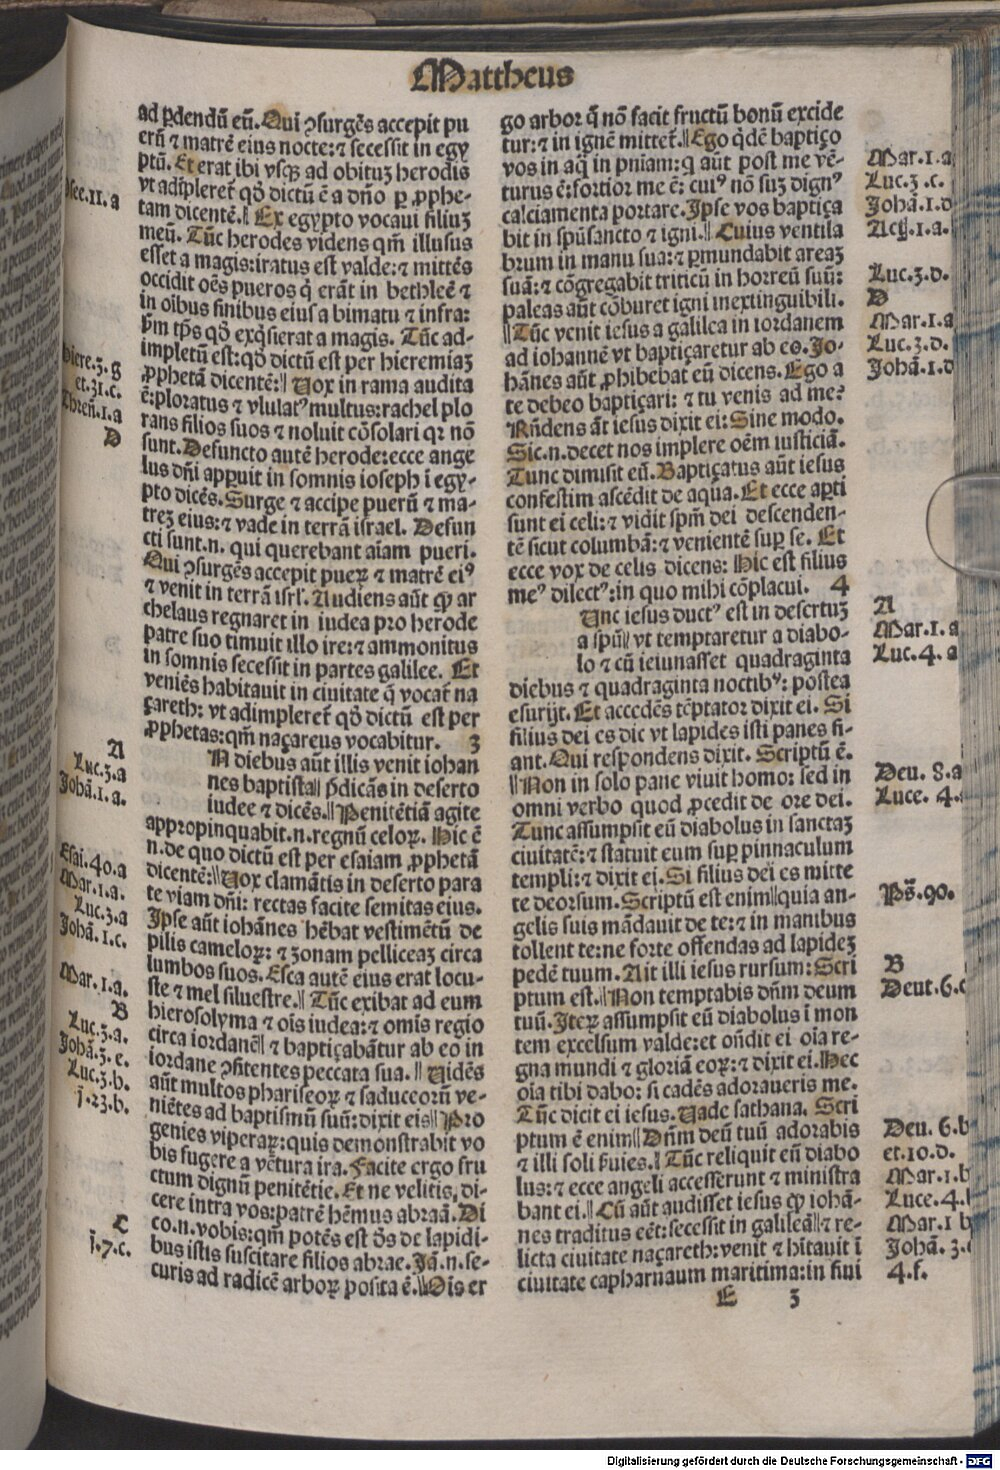 Mattheus
ad ꝑdendū eū. Qui ꝯsurgēs accepit pu
erū ⁊ matrē eius nocte: ⁊ secessit in egy
ptū. Et erat ibi vsqꝫ ad obituꝫ herodis
vt adīpleretˀ qđ dictū ē a dn̄o ꝑ ꝓphe-
tam dicentē. || Ex egypto vocaui filiuꝫ
meū. Tūc herodes videns qm̄ illusus
esset a magis: iratus est valde: ⁊ mittēs
occidit oēs pueros q̇ erāt in bethleē ⁊
in oībus finibus eius a bimatu ⁊ infra:
ẜm tp̄s qđ exq̇sierat a magis. Tūc ad-
impletū est: qđ dictū est per hieremiaꝫ
ꝓphetā dicentē: || Vox in rama audita
ē: ploratus ⁊ vlulatꝰ multus: rachel plo
rans filios suos ⁊ noluit cōsolari qꝛ nō
sunt. Defuncto autē herode: ecce ange
lus dn̄i apꝑuit in somnis ioseph ī egy-
pto dicēs. Surge ⁊ accipe puerū ⁊ ma-
treꝫ eius: ⁊ vade in terrā israel. Defun
cti sunt .n. qui querebant aīam pueri.
Qui ꝯsurgēs accepit pueꝝ ⁊ matrē eiꝰ
⁊ venit in terrā isrl̄. Audiens aūt ꝙ ar
chelaus regnaret in iudea pro herode
patre suo timuit illo ire: ⁊ ammonitus
in somnis secessit in partes galilee. Et
veniēs habitauit in ciuitate q̄ vocatˀ na
çareth: vt adimpleretˀ qđ dictū est per
ꝓphetas: qm̄ naçareus vocabitur. 3
N diebus aūt illis venit iohan
nes baptista || p̄dicās in deserto
iudee ⁊ dicēs. || Penitētiā agite
appropinquabit .n. regnū celoꝝ. Hic ē
.n. de quo dictū est per esaiam ꝓphetā
dicentē: || Vox clamātis in deserto para
te viam dn̄i: rectas facite semitas eius.
Ipse aūt iohānes hēbat vestimētū de
pilis cameloꝝ: ⁊ ꝫonam pelliceaꝫ circa
lumbos suos. Esca autē eius erat locu-
ste ⁊ mel siluestre. || Tūc exibat ad eum
hierosolyma ⁊ oīs iudea: ⁊ omīs regio
circa iordanē || ⁊ baptiçabātur ab eo in
iordane ꝯfitentes peccata sua. || Vidēs
aūt multos phariseoꝝ ⁊ saduceorū ve-
niētes ad baptismū suū: dixit eis || Pro
genies viperaꝝ: quis demonstrabit vo
bis fugere a vētura ira. Facite ergo fru
ctum dignū penitētie. Et ne velitis, di-
cere intra vos: patrē hēmus abraā. Di
co .n. vobis: qm̄ potēs est d̄s de lapidi-
bus istis suscitare filios abrae. Iā .n. se-
curis ad radicē arboꝝ posita ē. || Oīs er
go arbor q̄ nō facit fructū bonū excide
tur: ⁊ in ignē mittetˀ. || Ego q̇dē baptiço
vos in aq̄ in pn̄iam: q̇ aūt post me vē-
turus ē: fortior me ē: cuiꝰ nō suꝫ dignꝰ
calciamenta portare. Ipse vos baptiça
bit in spūsancto ⁊ igni. || Cuius ventila
brum in manu sua: ⁊ ꝑmundabit areaꝫ
suā: ⁊ cōgregabit triticū in horreū suū:
paleas aūt cōburet igni inextinguibili.
|| Tūc venit iesus a galilea in iordanem
ad iohannē vt baptiçaretur ab eo. Jo-
hānes aūt ꝓhibebat eū dicens. Ego a
te debeo baptiçari: ⁊ tu venis ad me?
Rn̄dens āt iesus dixit ei: Sine modo.
Sic .n. decet nos implere oēm iusticiā.
Tunc dimisit eū. Baptiçatus aūt iesus
confestim ascēdit de aqua. Et ecce aꝑti
sunt ei celi: ⁊ vidit spm̄ dei descenden-
tē sicut columbā: ⁊ venientē suꝑ se. Et
ecce vox de celis dicens: Hic est filius
meꝰ dilectꝰ: in quo mihi cōplacui. 4
Vnc iesus ductꝰ est in desertuꝫ
a spū || vt temptaretur a diabo-
lo ⁊ cū ieiunasset quadraginta
diebus ⁊ quadraginta noctibꝰ: postea
esurijt. Et accedēs tēptator dixit ei. Si
filius dei es dic vt lapides isti panes fi-
ant. Qui respondens dixit. Scriptū ē.
|| Non in solo pane viuit homo: sed in
omni verbo quod ꝓcedit de ore dei.
Tunc assumpsit eū diabolus in sanctaꝫ
ciuitatē: ⁊ statuit eum suꝑ pinnaculum
templi: ⁊ dixit ei. Si filius dei es mitte
te deorsum. Scriptū est enim || quia an-
gelis suis mādauit de te: ⁊ in manibus
tollent te: ne forte offendas ad lapideꝫ
pedē tuum. Ait illi iesus rursum: Scri
ptum est. || Non temptabis dn̄m deum
tuū. Iteꝝ assumpsit eū diabolus ī mon
tem excelsum valde: et on̄dit ei oīa re-
gna mundi ⁊ gloriā eoꝝ: ⁊ dixit ei. Hec
oīa tibi dabo: si cadēs adoraueris me.
Tūc dicit ei iesus. Vade sathana. Scri
ptum ē enim || Dn̄m deū tuū adorabis
⁊ illi soli ẜuies. || Tūc reliquit eū diabo
lus: ⁊ ecce angeli accesserunt ⁊ ministra
bant ei. || Cū aūt audisset iesus ꝙ iohā-
nes traditus eēt: secessit in galileā || ⁊ re-
licta ciuitate naçareth: venit ⁊ hītauit ī
ciuitate capharnaum maritima: in fini
E 3
Osee.11.a
Hiere.3.g
et.31.c.
Thren̄.1.a
D
A
Luc.3.a
Johā.1.a.
Esai.40.a
Mar.1.a.
Luc.3.a
Johā.1.c.
Mar.1.a.
B
Luc.3.a.
Johā.3.e.
Luc.3.b.
j.23.b.
C
j.7.c.
Mar.1.a
Luc.3.c.
Johā.1.d
Act.1.a.
Luc.3.d.
D
Mar.1.a
Luc.3.d.
Johā.1.d
A
Mar.1.a
Luc.4.a
Deu.8.a
Luce.4.
Ps̄.90.
B
Deut.6.c
Deu.6.b
et.10.d.
Mar.1.b
Luce.4.
Mar.1 b
Johā.3.
4.f.
Digitalisierung gefördert durch die Deutsche Forschungsgemeinschaft - DFG